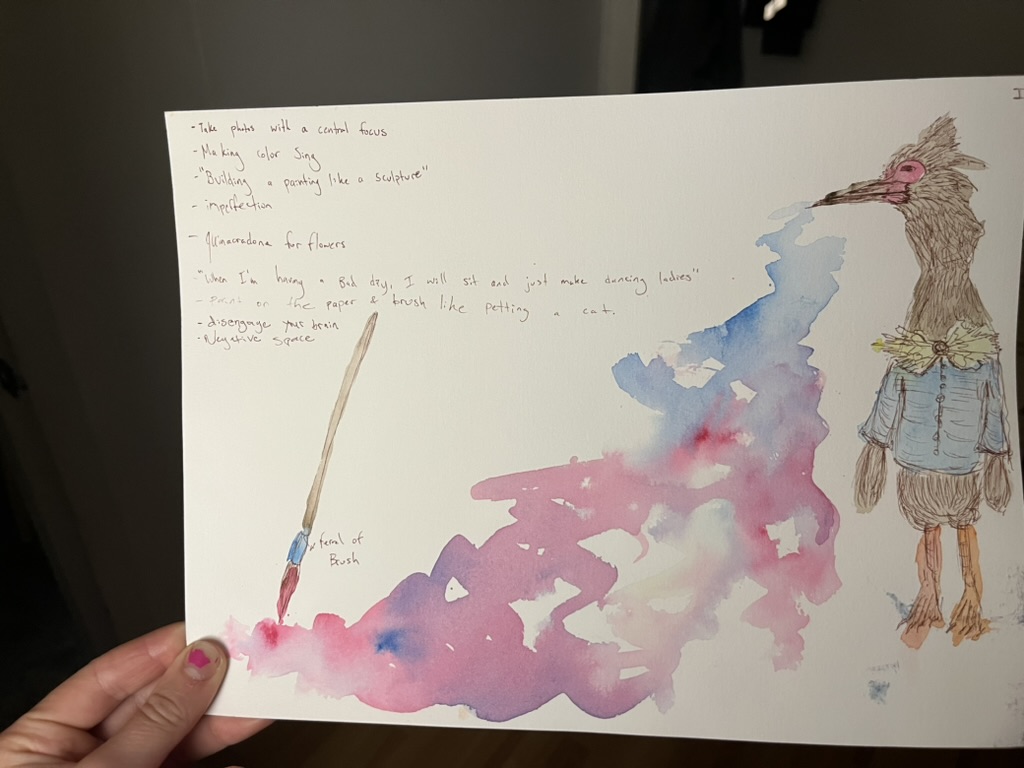 - Take photos with a central focus
- Making color Sing
- "Building a painting like a sculpture"
- imperfection
- Quinacradona for flowers
- "When I'm having a Bad day, I will sit and just make dancing ladies"
- Paint on the paper & brush like petting a cat.
- disengage your brain
- Negative space
feral of
Brush